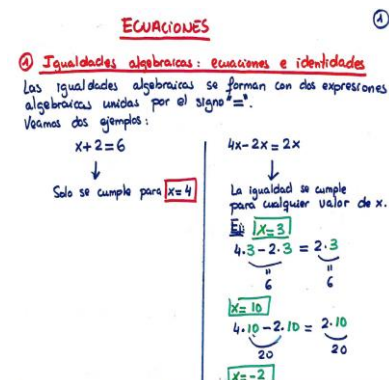 ECUACIONES
①
① Igualdades algebraicas: ecuaciones e identidades
Las igualdades algebraicas se forman con dos expresiones
algebraicas unidas por el signo "=".
Veamos dos ejemplos:
x+2=6
↓
Solo se cumple para x=4
4x-2x=2x
↓
La igualdad se cumple
para cualquier valor de x.
Ej: x=3
4·3-2·3 = 2·3
"
6
6
x=10
4·10-2·10 = 2·10
20
20
x=-2